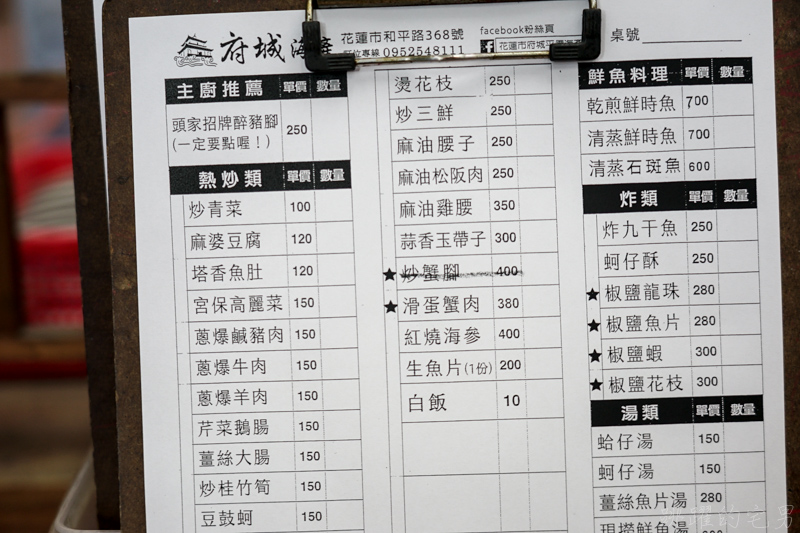 府城海
花蓮市和平路368號
專線 0952548111
facebook粉絲頁
花蓮市府城平
桌號
主廚推薦 單價 數量
頭家招牌醉豬腳 250
(一定要點喔！)
熱炒類 單價 數量
炒青菜 100
麻婆豆腐 120
塔香魚肚 120
宮保高麗菜 150
蔥爆鹹豬肉 150
蔥爆牛肉 150
蔥爆羊肉 150
芹菜鵝腸 150
薑絲大腸 150
炒桂竹筍 150
豆鼓蚵 150
燙花枝 250
炒三鮮 250
麻油腰子 250
麻油松阪肉 250
麻油雞腰 350
蒜香玉帶子 300
★炒蟹腳 400
★滑蛋蟹肉 380
紅燒海參 400
生魚片(1份) 200
白飯 10
鮮魚料理 單價 數量
乾煎鮮時魚 700
清蒸鮮時魚 700
清蒸石斑魚 600
炸類 單價 數量
炸九干魚 250
蚵仔酥 250
★椒鹽龍珠 280
★椒鹽魚片 280
★椒鹽蝦 300
★椒鹽花枝 300
湯類 單價 數量
蛤仔湯 150
蚵仔湯 150
薑絲魚片湯 280
現撈鮮魚湯
的宅男